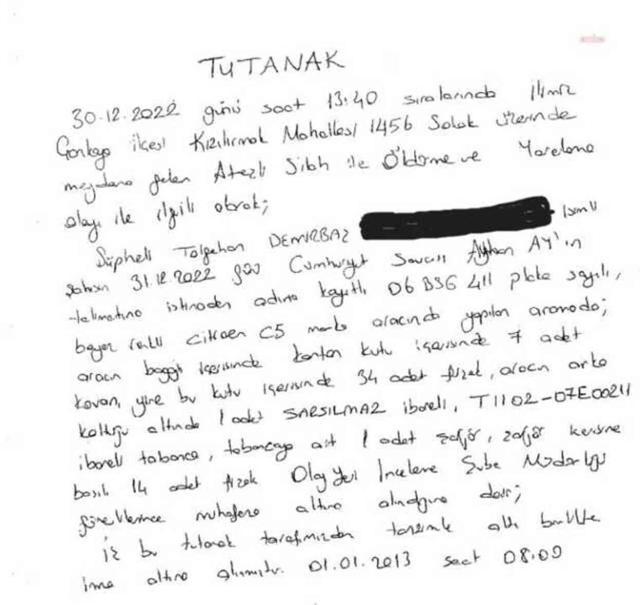 TUTANAK
30.12.2022 günü saat 13:40 sıralarında İlimiz
Çankaya ilçesi Kızılırmak Mahallesi 1456 Sokak üzerinde
meydana gelen Ateşli Silah ile Öldürme ve Yaralama
olayı ile ilgili olarak;
Şüpheli Tolgahan DEMİRBAŞ isimli
şahsın 31.12.2022 günü Cumhuriyet Savcısı Ayhan AY'ın
talimatına istinaden adına kayıtlı 06 BSG 411 plaka sayılı,
beyaz renkli Citroen C5 marka aracında yapılan aramada;
aracın bagajı içerisinde karton kutu içerisinde 7 adet
kovan, yine bu kutu içerisinde 34 adet fişek, aracın arka
koltuğu altında 1 adet SARSILMAZ ibareli, T1102-07E00211
ibareli tabanca, tabancaya ait 1 adet şarjör, şarjör kerisine
basılı 14 adet fişek Olay Yeri İnceleme Şube Müdürlüğü
görevlilerince muhafaza altına alındığına dair;
iş bu tutanak tarafımızdan tanzimle altı birlikte
imza altına alınmıştır. 01.01.2013 saat 08:00